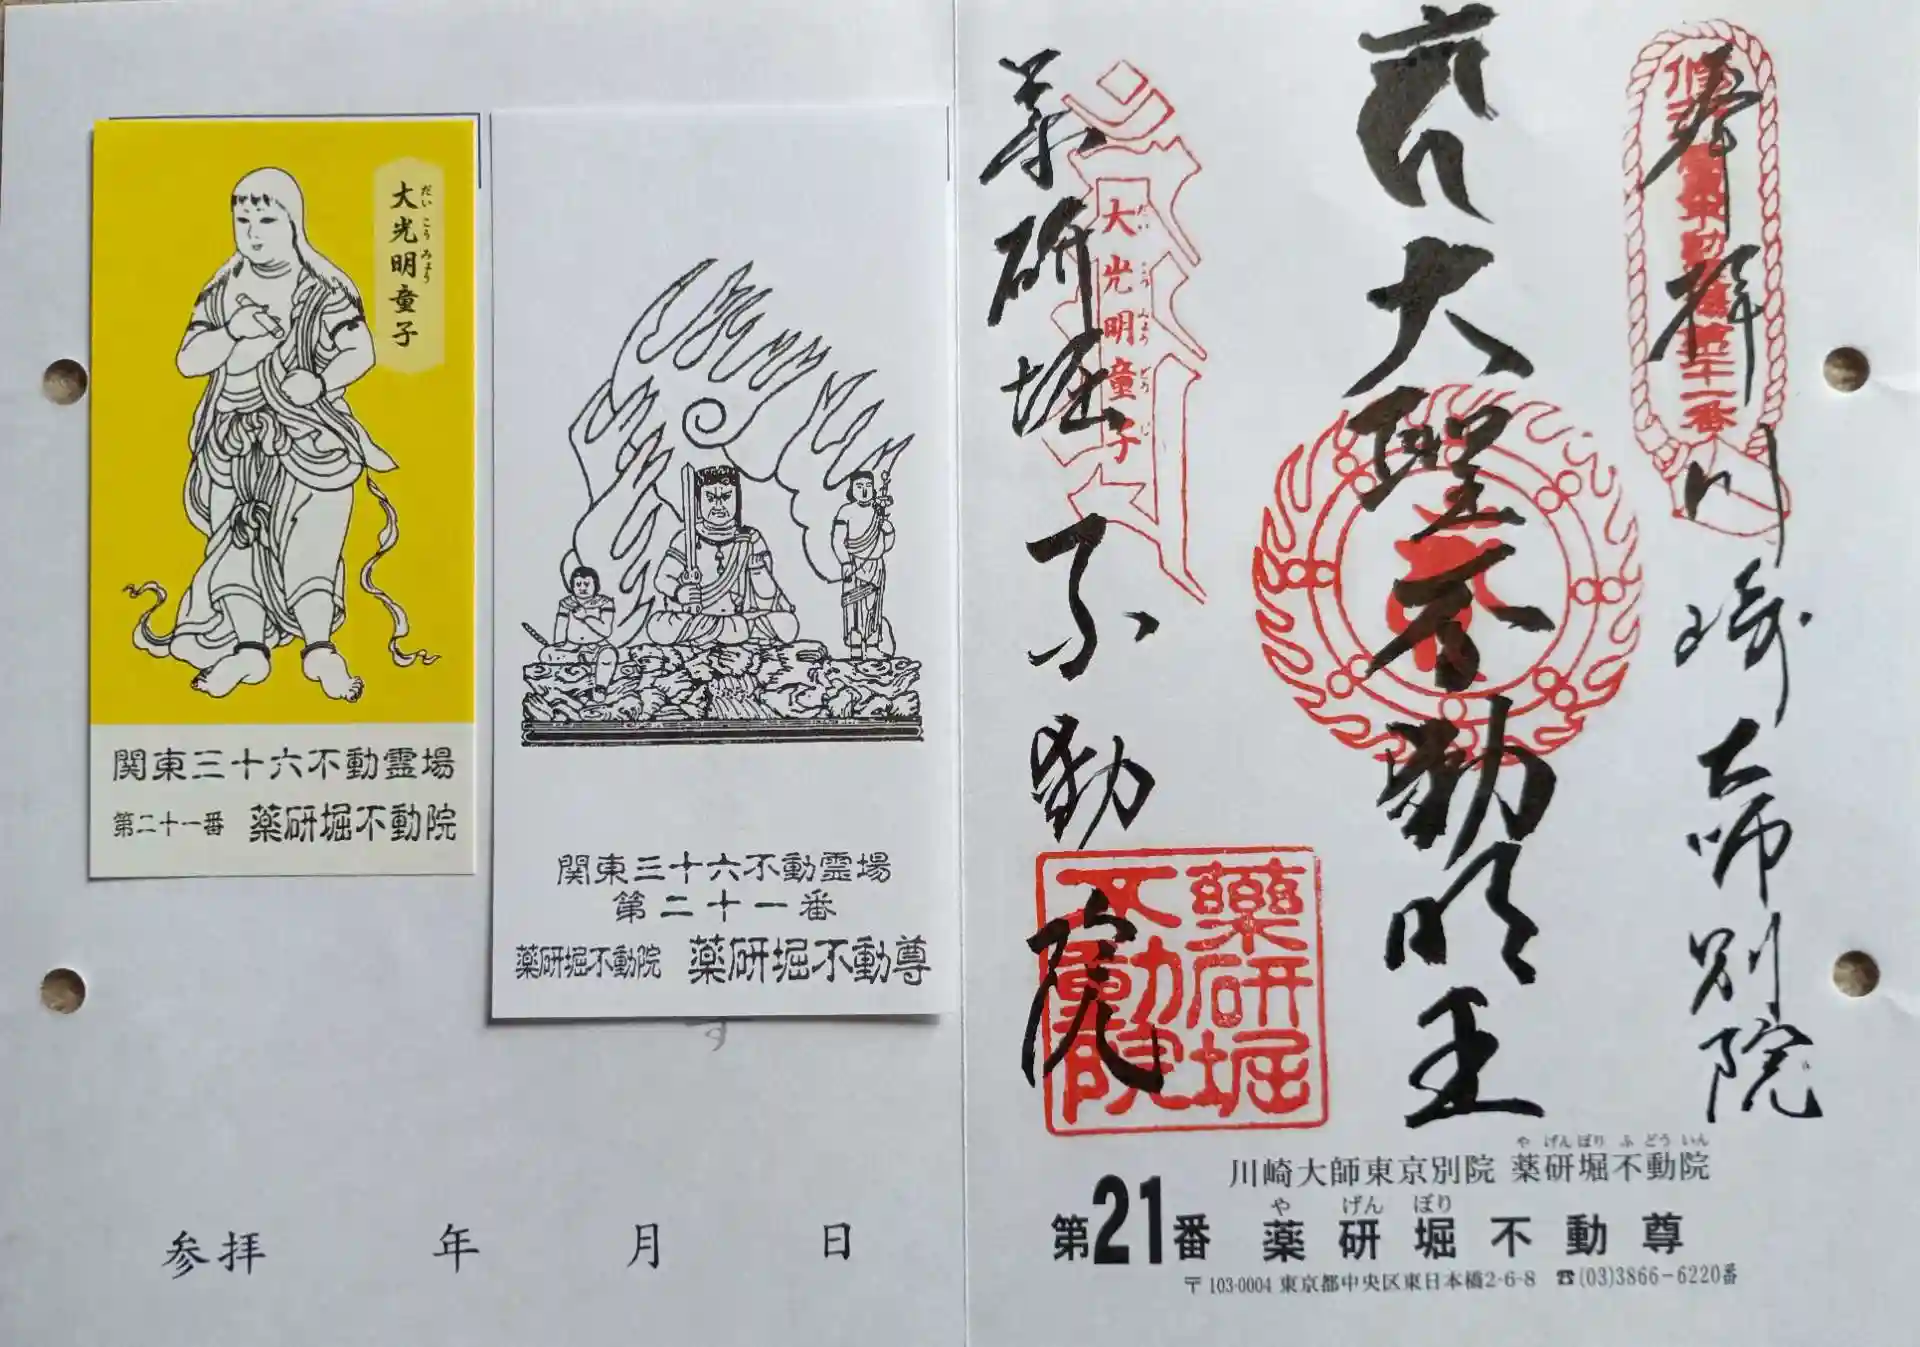 大光明童子
だいこうみょう
関東三十六不動霊場
第二十一番 薬研堀不動院
関東三十六不動霊場
第二十一番
薬研堀不動院 薬研堀不動尊
参拝 年 月 日
奉拝 川崎大師別院
大聖不動明王
薬研堀不動院
大光明童子
だいこうみょうどうじ
薬研堀
不動院
やげんぼりふどういん
川崎大師東京別院 薬研堀不動院
やげんぼり
第21番 薬研堀不動尊
〒103-0004 東京都中央区東日本橋2-6-8 ☎(03)3866-6220番